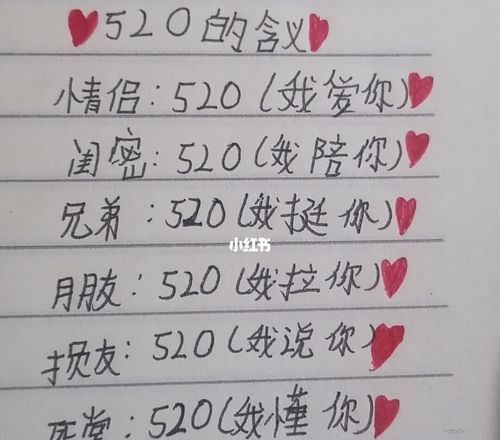 520的含义
情侣:520(我爱你)
闺密:520(我陪你)
兄弟:520(我挺你)
小红书
朋友:520(我拉你)
损友:520(我说你)
死党:520(我懂你)